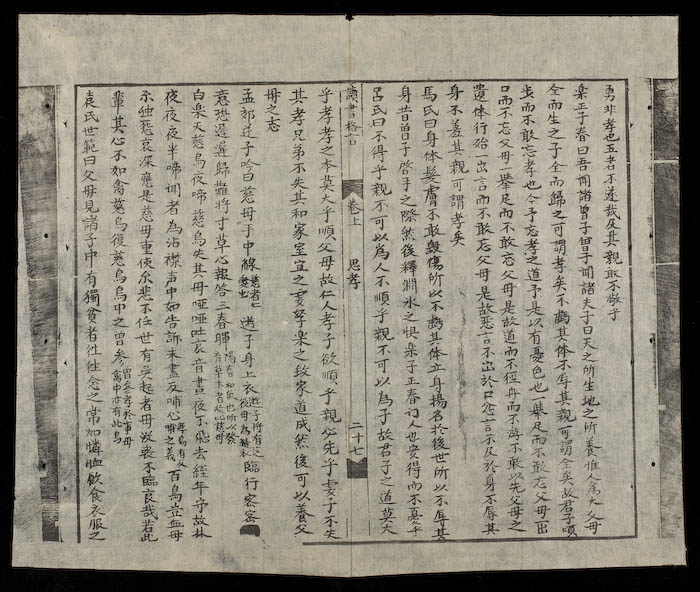 勇非孝也五者不遂烖及其親敢不敬乎
樂正子春曰吾聞諸曾子曾子聞諸夫子曰天之所生地之所養惟人為大父母
全而生之子全而歸之可謂孝矣不虧其体不辱其親可謂全矣故君子頃
步而不敢忘孝也今予忘孝之道予是以有憂色也一舉足而不敢忘父母一出
口而不忘父母一舉足而不敢忘父母是故道而不徑舟而不游不敢以先父母之
遺体行殆一出言而不敢忘父母是故惡言不出於口忿言不及於身不辱其
身不羞其親可謂孝矣
馬氏曰身体髮膚不敢毀傷所以不虧其体立身揚名於後世所以不辱其
身昔曾子啓手之際然後釋淵冰之惧樂子正春人也安得而不憂乎
呂氏曰不得乎親不可以為人不順乎親不可以為子故君子之道莫大
讀書格言 卷上 思孝 二十七
乎孝孝之本莫大乎順父母故仁人孝子欲順乎親必先乎妻子不失
其孝兄弟不失其和家室宜之妻孥樂之致家道成然後可以養父
母之志
孟郊遊子吟曰慈母手中線慈者仁愛出遊子身上衣遊子將有遠從母為縫衣臨行密密
意恐遲遲歸難將寸草心報答三春暉陽春和氣也所以發育草木者比心慈母
白樂天慈烏夜啼慈烏失其母啞啞吐哀音晝夜不飛去經年守故林
夜夜夜半啼聞者為沾襟声中如告訴未盡反哺心烏有反哺之義百鳥豈無母
尔独慈哀深應是慈母重使尔悲不任世有吳起者母歿喪不臨哀哉若此
輩其心不如禽慈烏復慈烏烏中之曾參曾參孝於事母禽中亦有此烏
袁氏世範曰父母見諸子中有獨貧者往往念之常加憐恤飲食衣服之